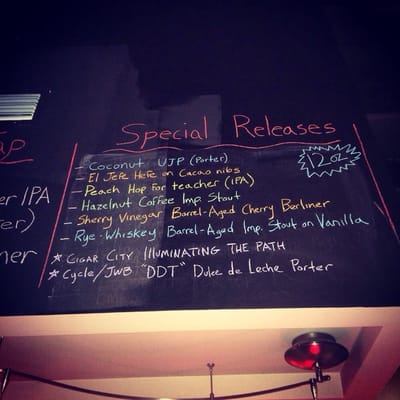 Special Releases
12 oz.
- Coconut UJP (Porter)
- El Jefe Hefe on Cacao nibs
- Peach Hop For teacher (IPA)
- Hazelnut Coffee Imp. Stout
- Sherry Vinegar Barrel-Aged Cherry Berliner
- Rye-Whiskey Barrel-Aged Imp. Stout on Vanilla
* Cigar City Illuminating the Path
* Cycle/JWB "DDT" Dulce de Leche Porter
IPA